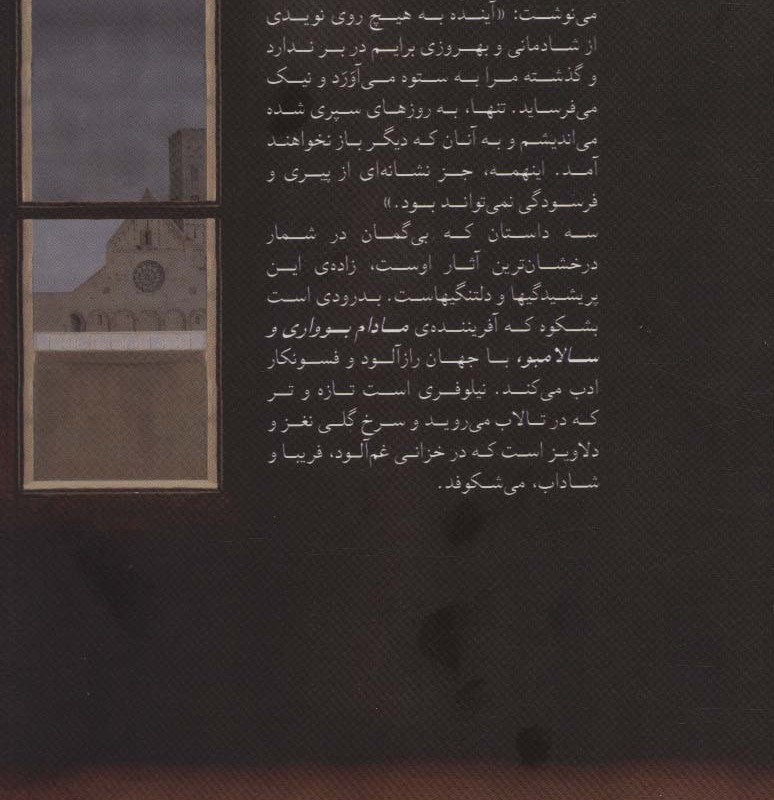 می‌نوشت: «آینده به هیچ روی نویدی
از شادمانی و بهروزی برایم در بر ندارد
و گذشته مرا به ستوه می‌آوَرَد و نیک
می‌فرساید. تنها، به روزهای سپری شده
می‌اندیشم و به آنان که دیگر باز نخواهند
آمد. اینهمه، جز نشانه‌ای از پیری و
فرسودگی نمی‌تواند بود.»
سه داستان که بی‌گمان در شمار
درخشان‌ترین آثار اوست، زاده‌ی این
پریشیدگیها و دلتنگیهاست. بدرودی است
بشکوه که آفریننده‌ی مادام بوواری و
سالامبو، با جهان رازآلود و فسونکار
ادب می‌کند. نیلوفری است تازه و تر
که در تالاب می‌روید و سرخ گلی نغز و
دلاویز است که در خزانی غم‌آلود، فریبا و
شاداب، می‌شکوفد.